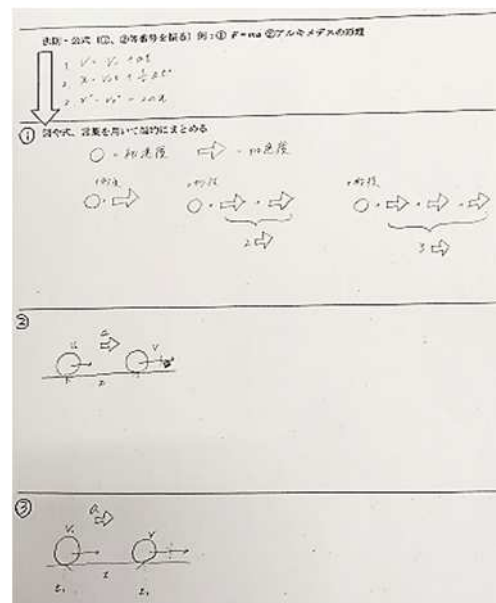 法則・公式（①、②等番号を振る）例：① F=ma ②アルキメデスの原理
1. V = V₀ + at
2. x = V₀t + ½at²
3. V² - V₀² = 2ax
① 図や式、言葉を用いて端的にまとめる
○ = 初速度 ⇨ = 加速度
1秒後 2秒後 3秒後
○ + ⇨ ○ + ⇨ + ⇨ ○ + ⇨ + ⇨ + ⇨
2⇨ 3⇨
②
a
V
③
a
V₀ V